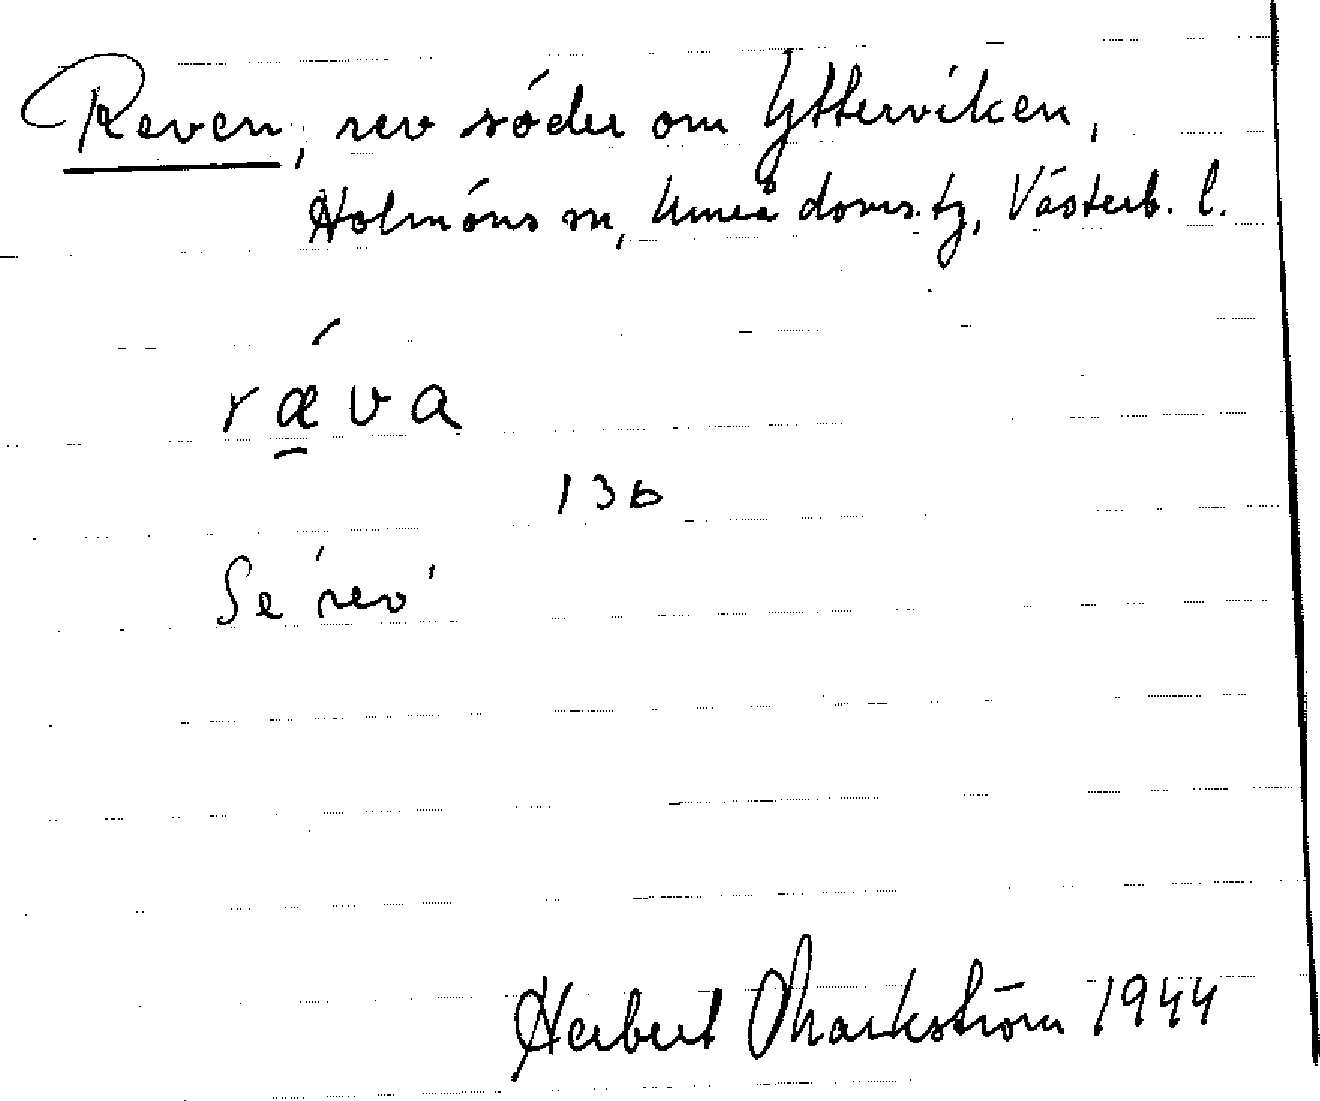 Reven, rev söder om Ytterviken,
Holmöns sn, Umeå doms.tg, Västerb. l.
rǽ̱va
13b
Se 'rev'
Herbert Markström 1944